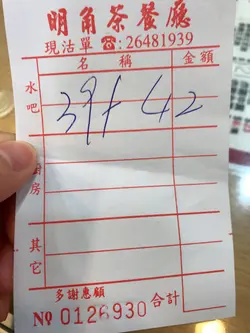 明角茶餐廳
現沽單☎:26481939
名 稱 金額
水吧
廚房
其它
多謝惠顧
№ 0126930 合計